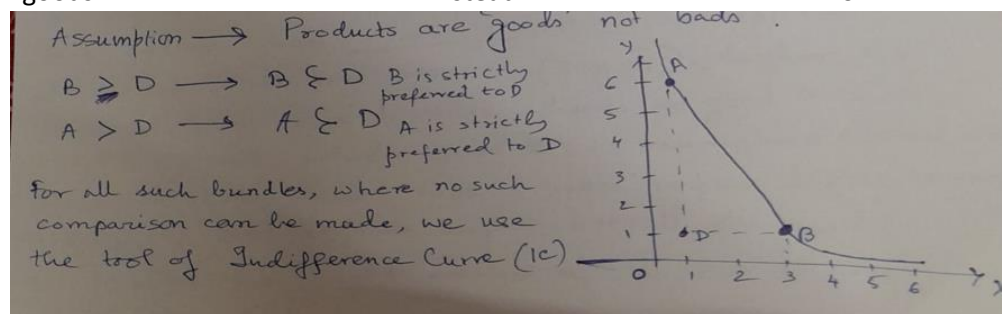 Assumption → Products are "goods" not "bads".
B ≥ D → B ⪰ D B is strictly
preferred to D
A > D → A ⪰ D A is strictly
preferred to D
For all such bundles, where no such
comparison can be made, we use
the tool of Indifference Curve (IC)
y
A
6
5
4
3
2
1 D B
0 1 2 3 4 5 6